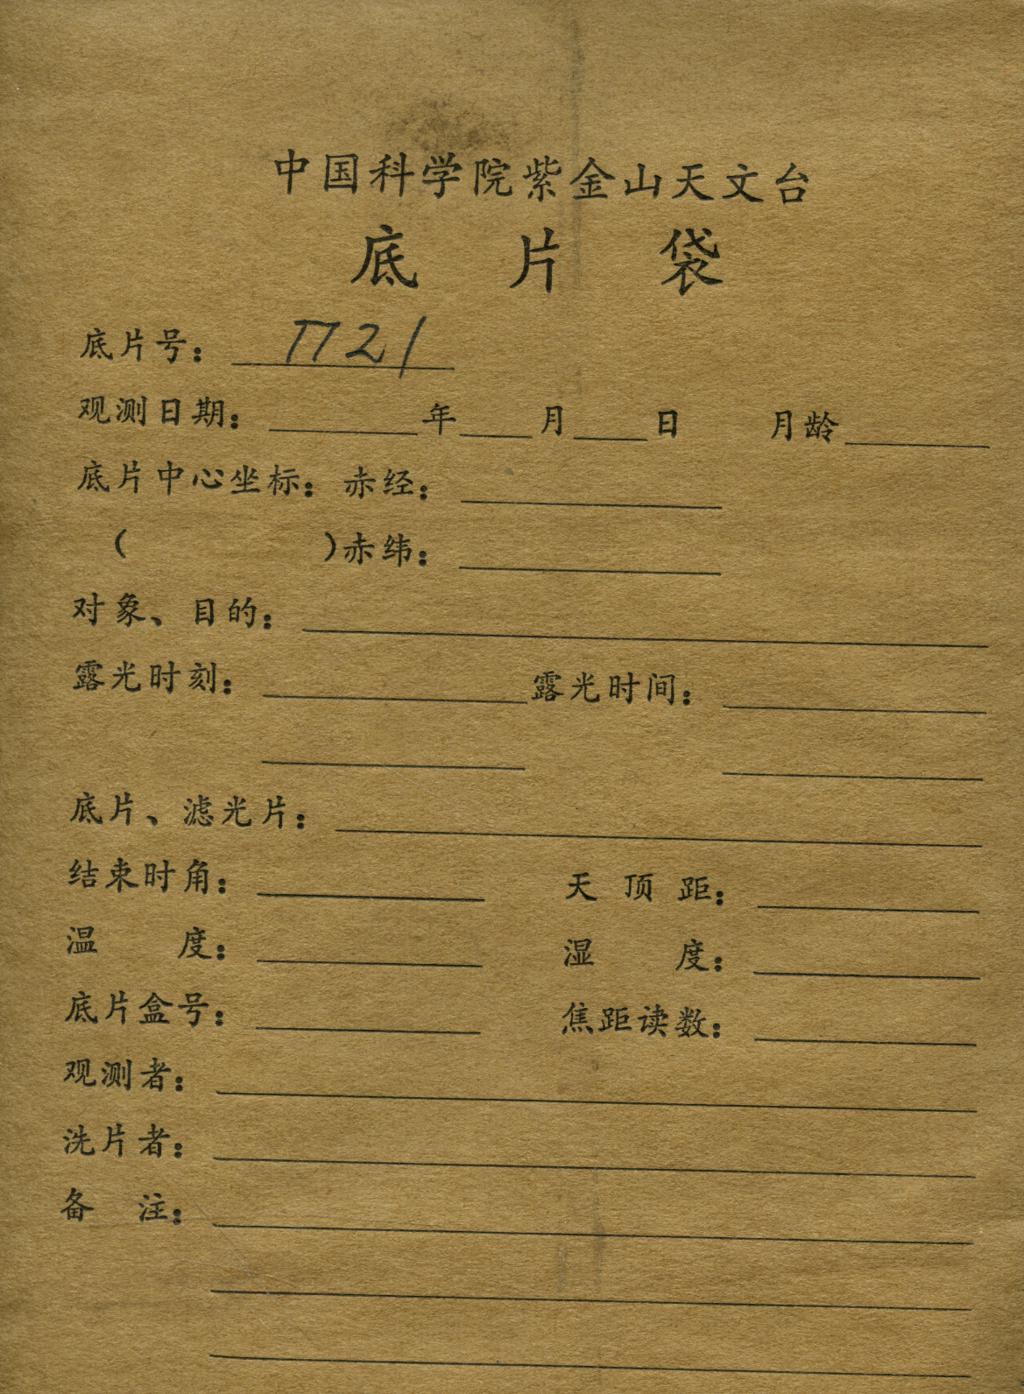 中国科学院紫金山天文台
底片袋
底片号：7721
观测日期：年月日 月龄
底片中心坐标：赤经：
（ ）赤纬：
对象、目的：
露光时刻： 露光时间：
底片、滤光片：
结束时角： 天顶距：
温度： 湿度：
底片盒号： 焦距读数：
观测者：
洗片者：
备注：